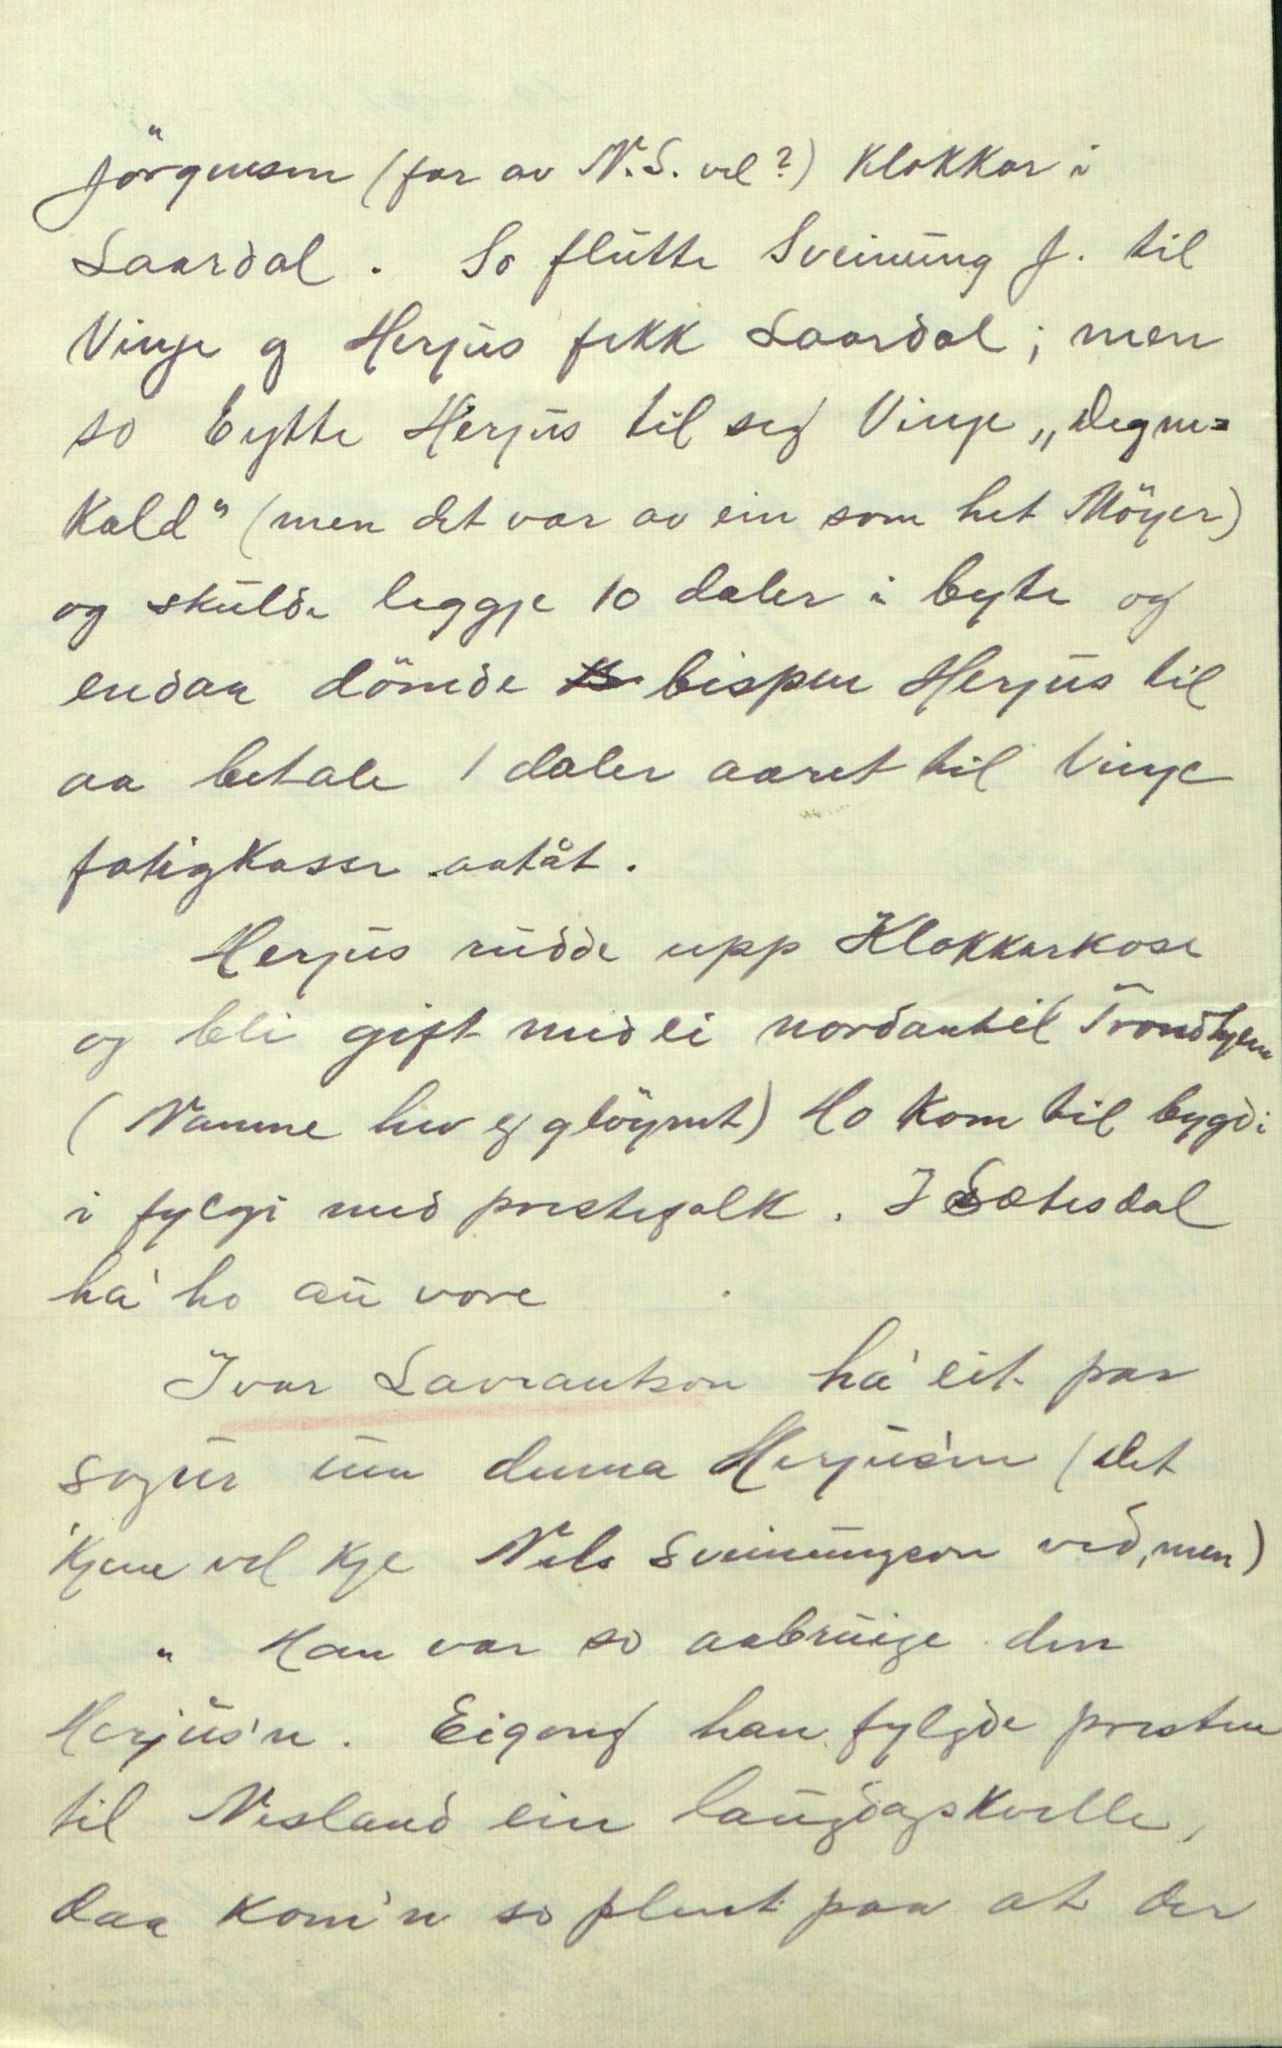 Jörgensen (far av N.S. vel?) Klokkar i
Laardal. So flutte Sveinung J. til
Vinje og Herjus fekk Laardal; men
so bytte Herjus til seg Vinje „Degne=
kald" (men det var av ein som het Möyer)
og skulde leggje 10 daler i byte og
endaa dömde bispen Herjus til
aa betale 1 daler aaret til Vinje
fatigkasse aatåt.
Herjus rudde upp Klokkarkose
og blei gift med ei nordantil Trondhjem
(Namne hev eg glöymt) Ho kom til bygdi
i fylgi med prestefolk. I Sætesdal
ha' ho au vore
Ivar Lavrantson ha' eit par
sogur um denna Herjus'en (det
kjem vel kje Nils Sveinungson ved, men)
" Han var so aabruige den
Herjus'n. Eigong han fylgde presten
til Nesland ein laugdagskvelle,
daa kom'n so plent paa at der